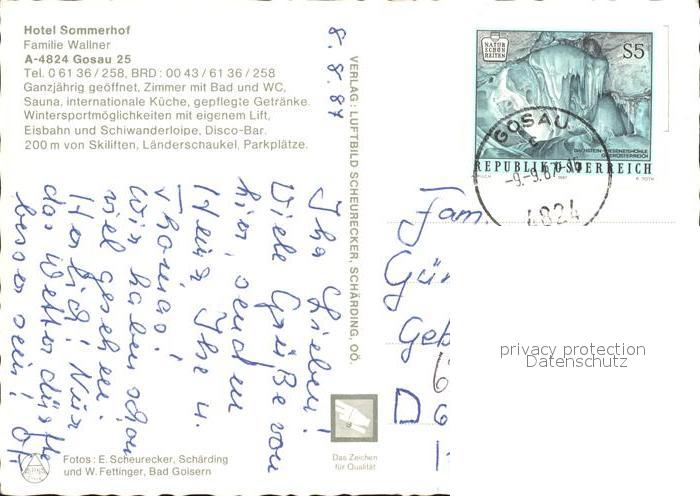 Hotel Sommerhof
Familie Wallner
A-4824 Gosau 25
Tel. 0 61 36 / 258, BRD : 00 43 / 61 36 / 258
Ganzjährig geöffnet, Zimmer mit Bad und WC,
Sauna, internationale Küche, gepflegte Getränke.
Wintersportmöglichkeiten mit eigenem Lift,
Eisbahn und Schiwanderloipe, Disco-Bar.
200 m von Skiliften, Länderschaukel, Parkplätze.
8. 8. 87
Ihr Lieben!
Viele Grüße von
hier, senden
Heinz, Ilse u.
Thomas!
Wir haben schon
viel gesehen.
Herrlich! Nur
das Wetter dürfte
besser sein!
VERLAG: LUFTBILD SCHEURECKER, SCHÄRDING, OÖ.
Fotos : E. Scheurecker, Schärding
und W. Fettinger, Bad Goisern
Das Zeichen
für Qualität
NATUR
SCHÖN
REITEN
S5
DACHSTEIN-RIESENEISHÖHLE
OBERÖSTERREICH
REPUBLIK ÖSTERREICH
1987
R. TOTH
GOSAU
4824
Fam.
Gü
Geb
D
privacy protection
Datenschutz